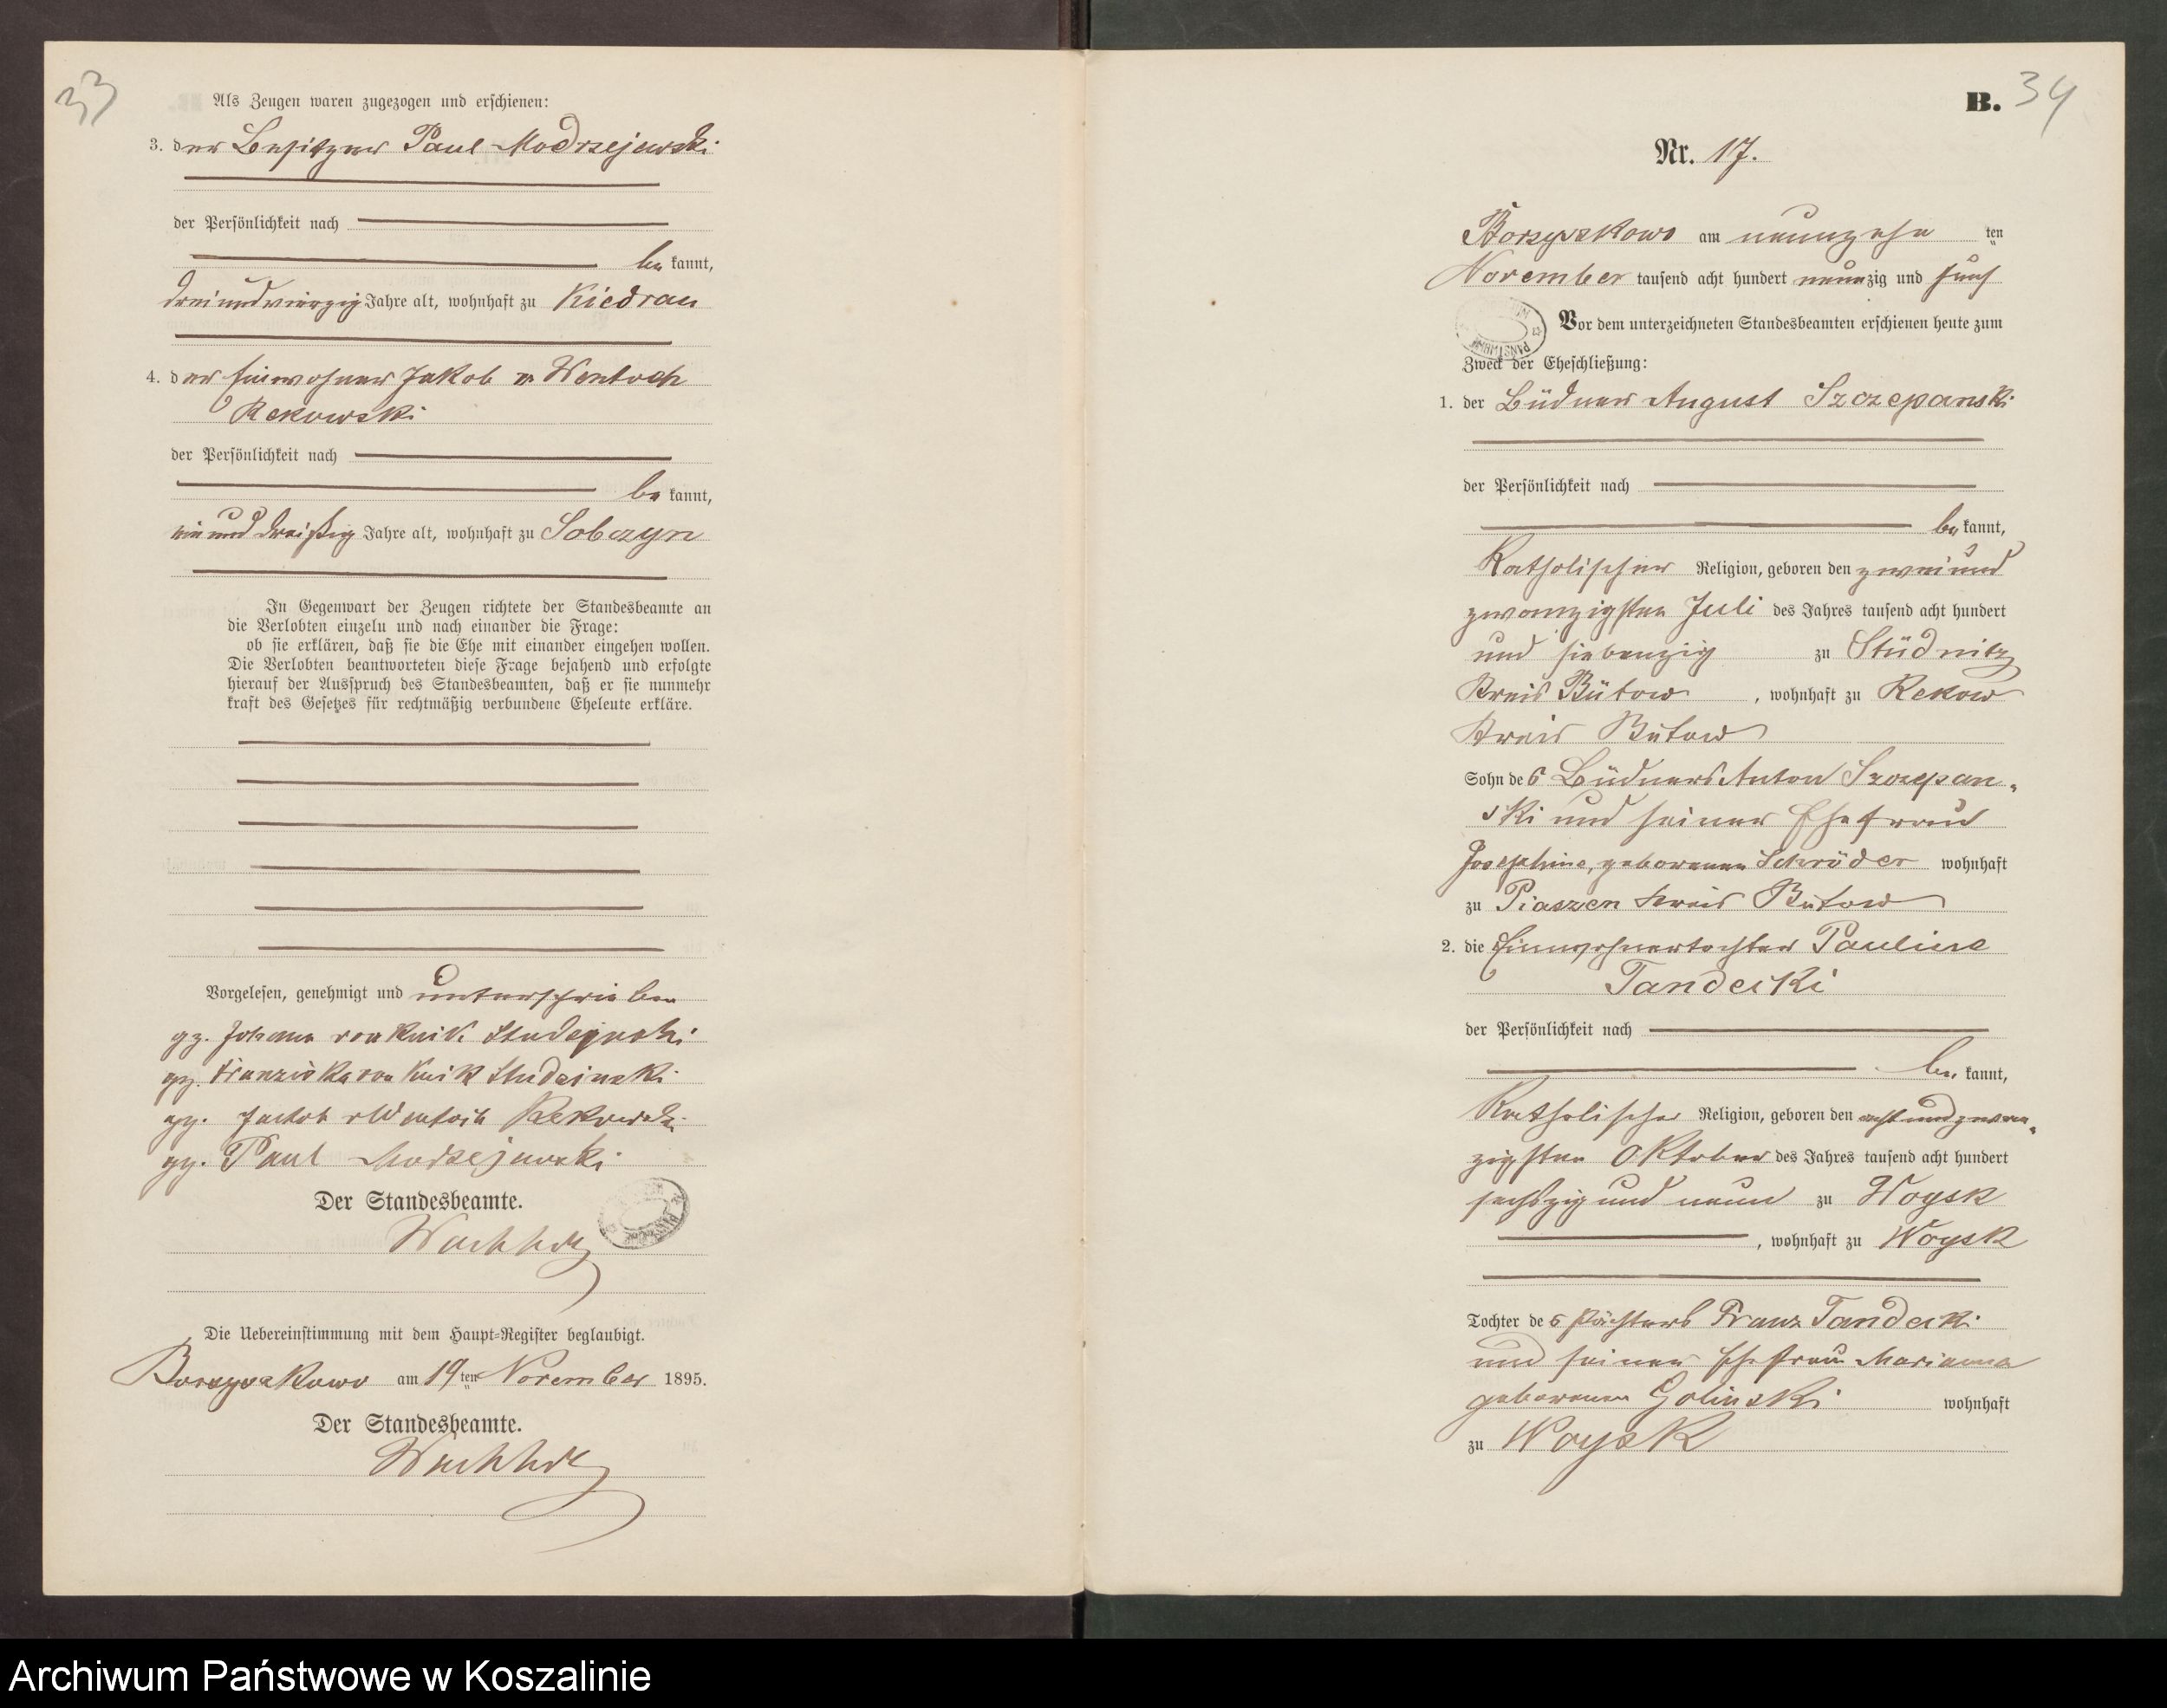 33
Als Zeugen waren zugezogen und erschienen:
3. der Besitzer Paul Modrzejewski
der Persönlichkeit nach
be kannt,
dreiundvierzig Jahre alt, wohnhaft zu Kiedrau
4. der Einwohner Jakob v. Wentoch
Rekowski
der Persönlichkeit nach
be kannt,
einunddreißig Jahre alt, wohnhaft zu Sobczyn
In Gegenwart der Zeugen richtete der Standesbeamte an
die Verlobten einzeln und nach einander die Frage:
ob sie erklären, daß sie die Ehe mit einander eingehen wollen.
Die Verlobten beantworteten diese Frage bejahend und erfolgte
hierauf der Ausspruch des Standesbeamten, daß er sie nunmehr
kraft des Gesetzes für rechtmäßig verbundene Eheleute erkläre.
Vorgelesen, genehmigt und unterschrieben
gz. Johann von Kuik Studzinski
gz. Franziska von Kuik Studzinski
gz. Jackob v Wentoch Rekowski
gz. Paul Modzejewski
Der Standesbeamte.
Die Uebereinstimmung mit dem Haupt-Register beglaubigt.
Borzyskowo am 19ten November 1895.
Der Standesbeamte.
B. 34
Nr. 17.
Borzyskowo am neunzehn ten
November tausend acht hundert neunzig und fünf
Vor dem unterzeichneten Standesbeamten erschienen heute zum
Zweck der Eheschließung:
1. der Büdner August Szczepanski
der Persönlichkeit nach
be kannt,
Katholischer Religion, geboren den zweiund
zwanzigsten Juli des Jahres tausend acht hundert
und siebenzig zu Stüdnitz
Kreis Bütow, wohnhaft zu Rekow
Kreis Bütow
Sohn des Büdners Anton Szczepan-
ski und seiner Ehefrau
Josephine, geborenen Schröder wohnhaft
zu Piaszen Kreis Bütow
2. die Einwohnertochter Pauline
Tandecki
der Persönlichkeit nach
be kannt,
Katholischer Religion, geboren den achtundzwan-
zigsten Oktober des Jahres tausend acht hundert
sechszig und neun zu Woysk
, wohnhaft zu Woysk
Tochter des Pächters Franz Tandecki
und seiner Ehefrau Marianna
geborenen Golinski wohnhaft
zu Woysk
Archiwum Państwowe w Koszalinie